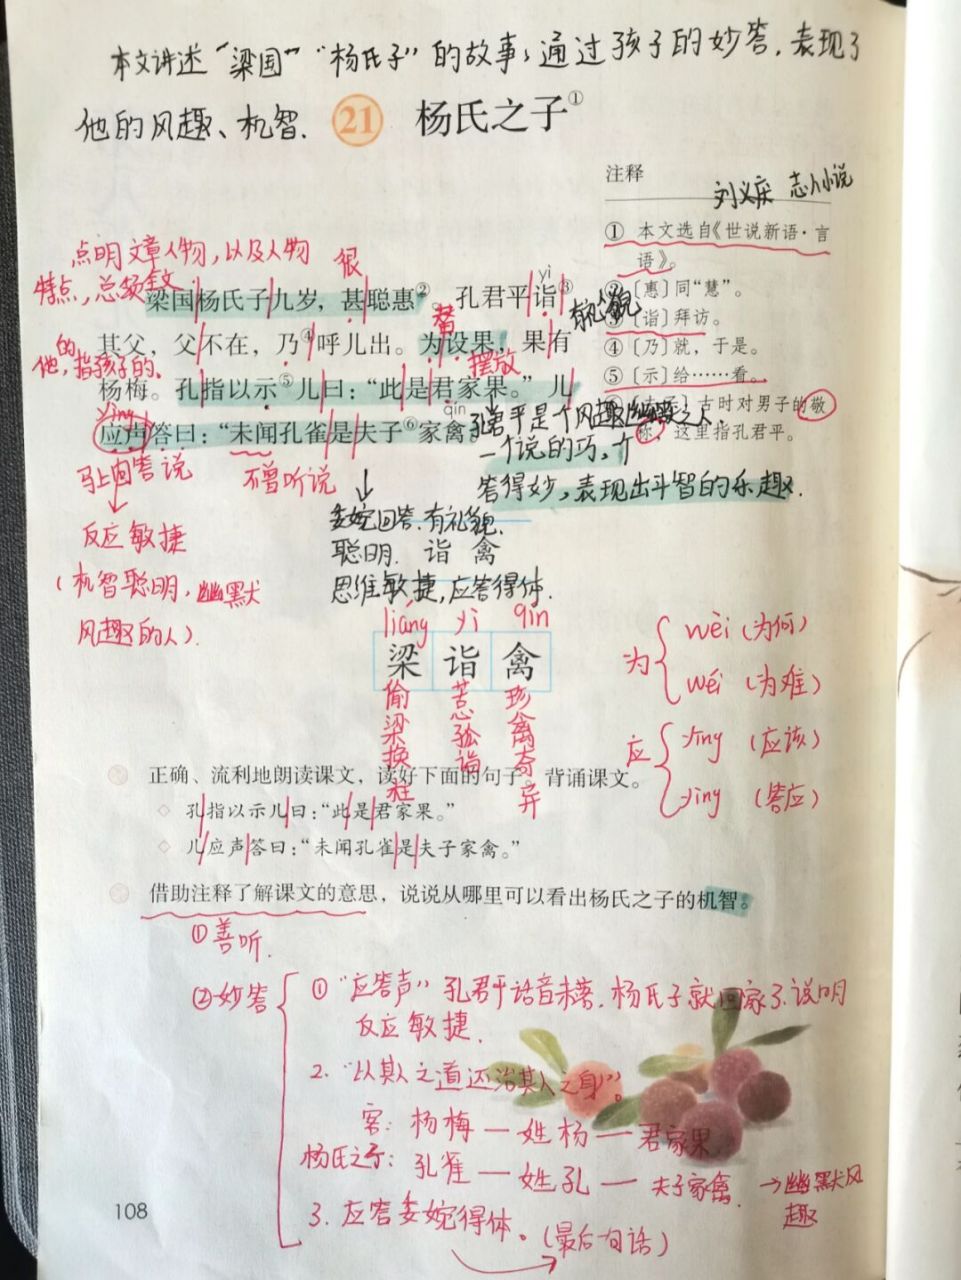 本文讲述“梁国”“杨氏子”的故事,通过孩子的妙答,表现了
他的风趣、机智.
21 杨氏之子①
注释
刘义庆 志人小说
① 本文选自《世说新语·言
语》。
②〔惠〕同“慧”。
③〔诣〕拜访。
④〔乃〕就,于是。
⑤〔示〕给……看。
古时对男子的敬
称,这里指孔君平。
点明文章人物,以及人物
特点,总领全文.
很
yì
有礼貌
梁国杨氏子九岁,甚聪惠②。孔君平诣③
其父,父不在,乃④呼儿出。为设果,果有
替
他的,指孩子的.
摆放
杨梅。孔指以示⑤儿曰:“此是君家果。”儿
yìng
qín
应声答曰:“未闻孔雀是夫子⑥家禽。”
孔君平是个风趣幽默之人,
一个说的巧,个
答得妙,表现出斗智的乐趣.
马上回答说
不曾听说
反应敏捷
(机智聪明,幽默
风趣的人).
委婉回答.有礼貌.
聪明. 诣 禽
思维敏捷,应答得体.
liáng yì qín
梁 诣 禽
偷梁换柱
苦心孤诣
珍禽奇异
为 wèi (为何)
wéi (为难)
应 yīng (应该)
yìng (答应)
正确、流利地朗读课文,读好下面的句子。背诵课文。
◇ 孔指以示儿曰:“此是君家果。”
◇ 儿应声答曰:“未闻孔雀是夫子家禽。”
借助注释了解课文的意思,说说从哪里可以看出杨氏之子的机智。
①善听.
②妙答
①“应答声”孔君平话音未落,杨氏子就回家了.说明
反应敏捷.
2.“以其人之道还治其人之身”。
客: 杨梅—姓杨—君家果
杨氏之子: 孔雀—姓孔—夫子家禽 →幽默风
趣
3. 应答委婉得体。(最后一句话)
108